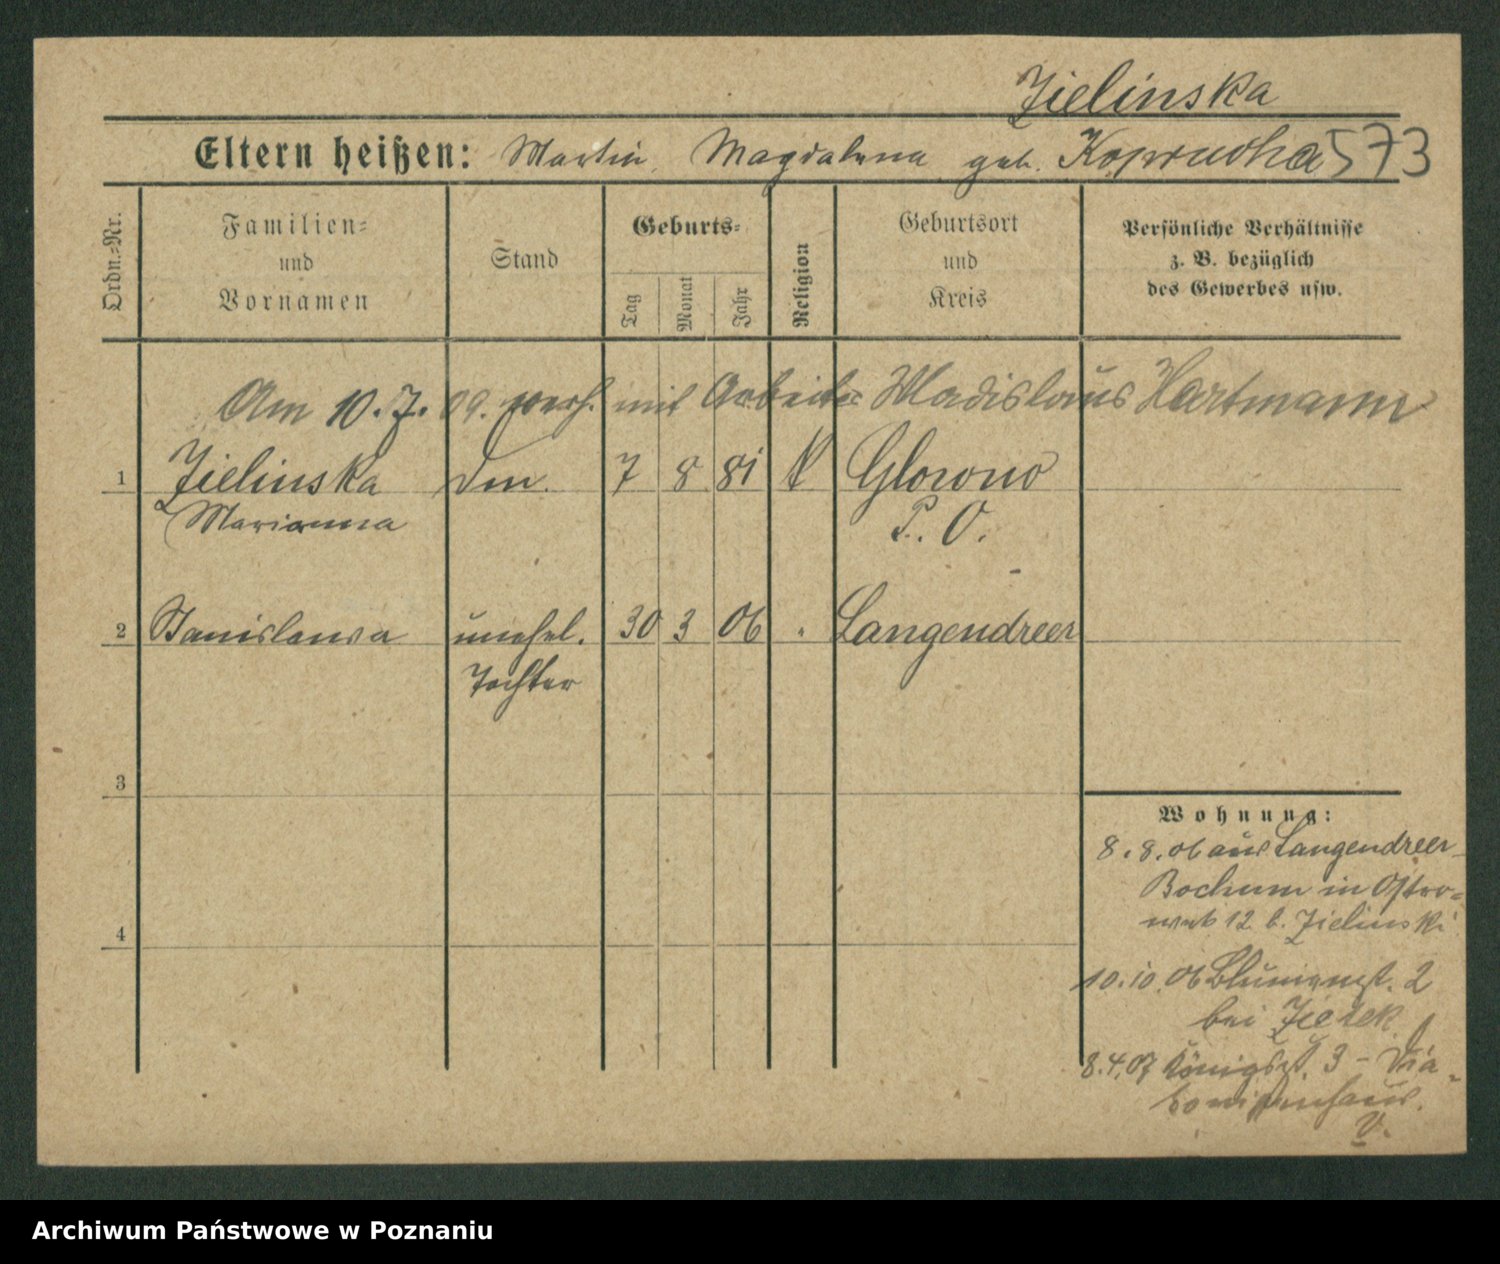 Zielinska
Eltern heißen: Martin, Magdalena geb. Koprucka 573
Ordn.-Nr.
Familien-
und
Vornamen
Stand
Geburts-
Tag
Monat
Jahr
Religion
Geburtsort
und
Kreis
Persönliche Verhältnisse
z. B. bezüglich
des Gewerbes usw.
Am 10.7.09. verh. mit Arbeiter Wladislaus Hartmann
1 Zielinska 7 8 81 K Glowno
Marianna P. O.
2 Stanislawa unehel. 30 3 06 " Langendreer
Tochter
3
4
Wohnung:
8.8.06 aus Langendreer-
Bochum in Ostro-
wek 12 b. Zielinski
10.10.06 Blumenst. 2
bei
8.4.07 Königst. 3 - Dia-
konissenhaus.
V.
Archiwum Państwowe w Poznaniu